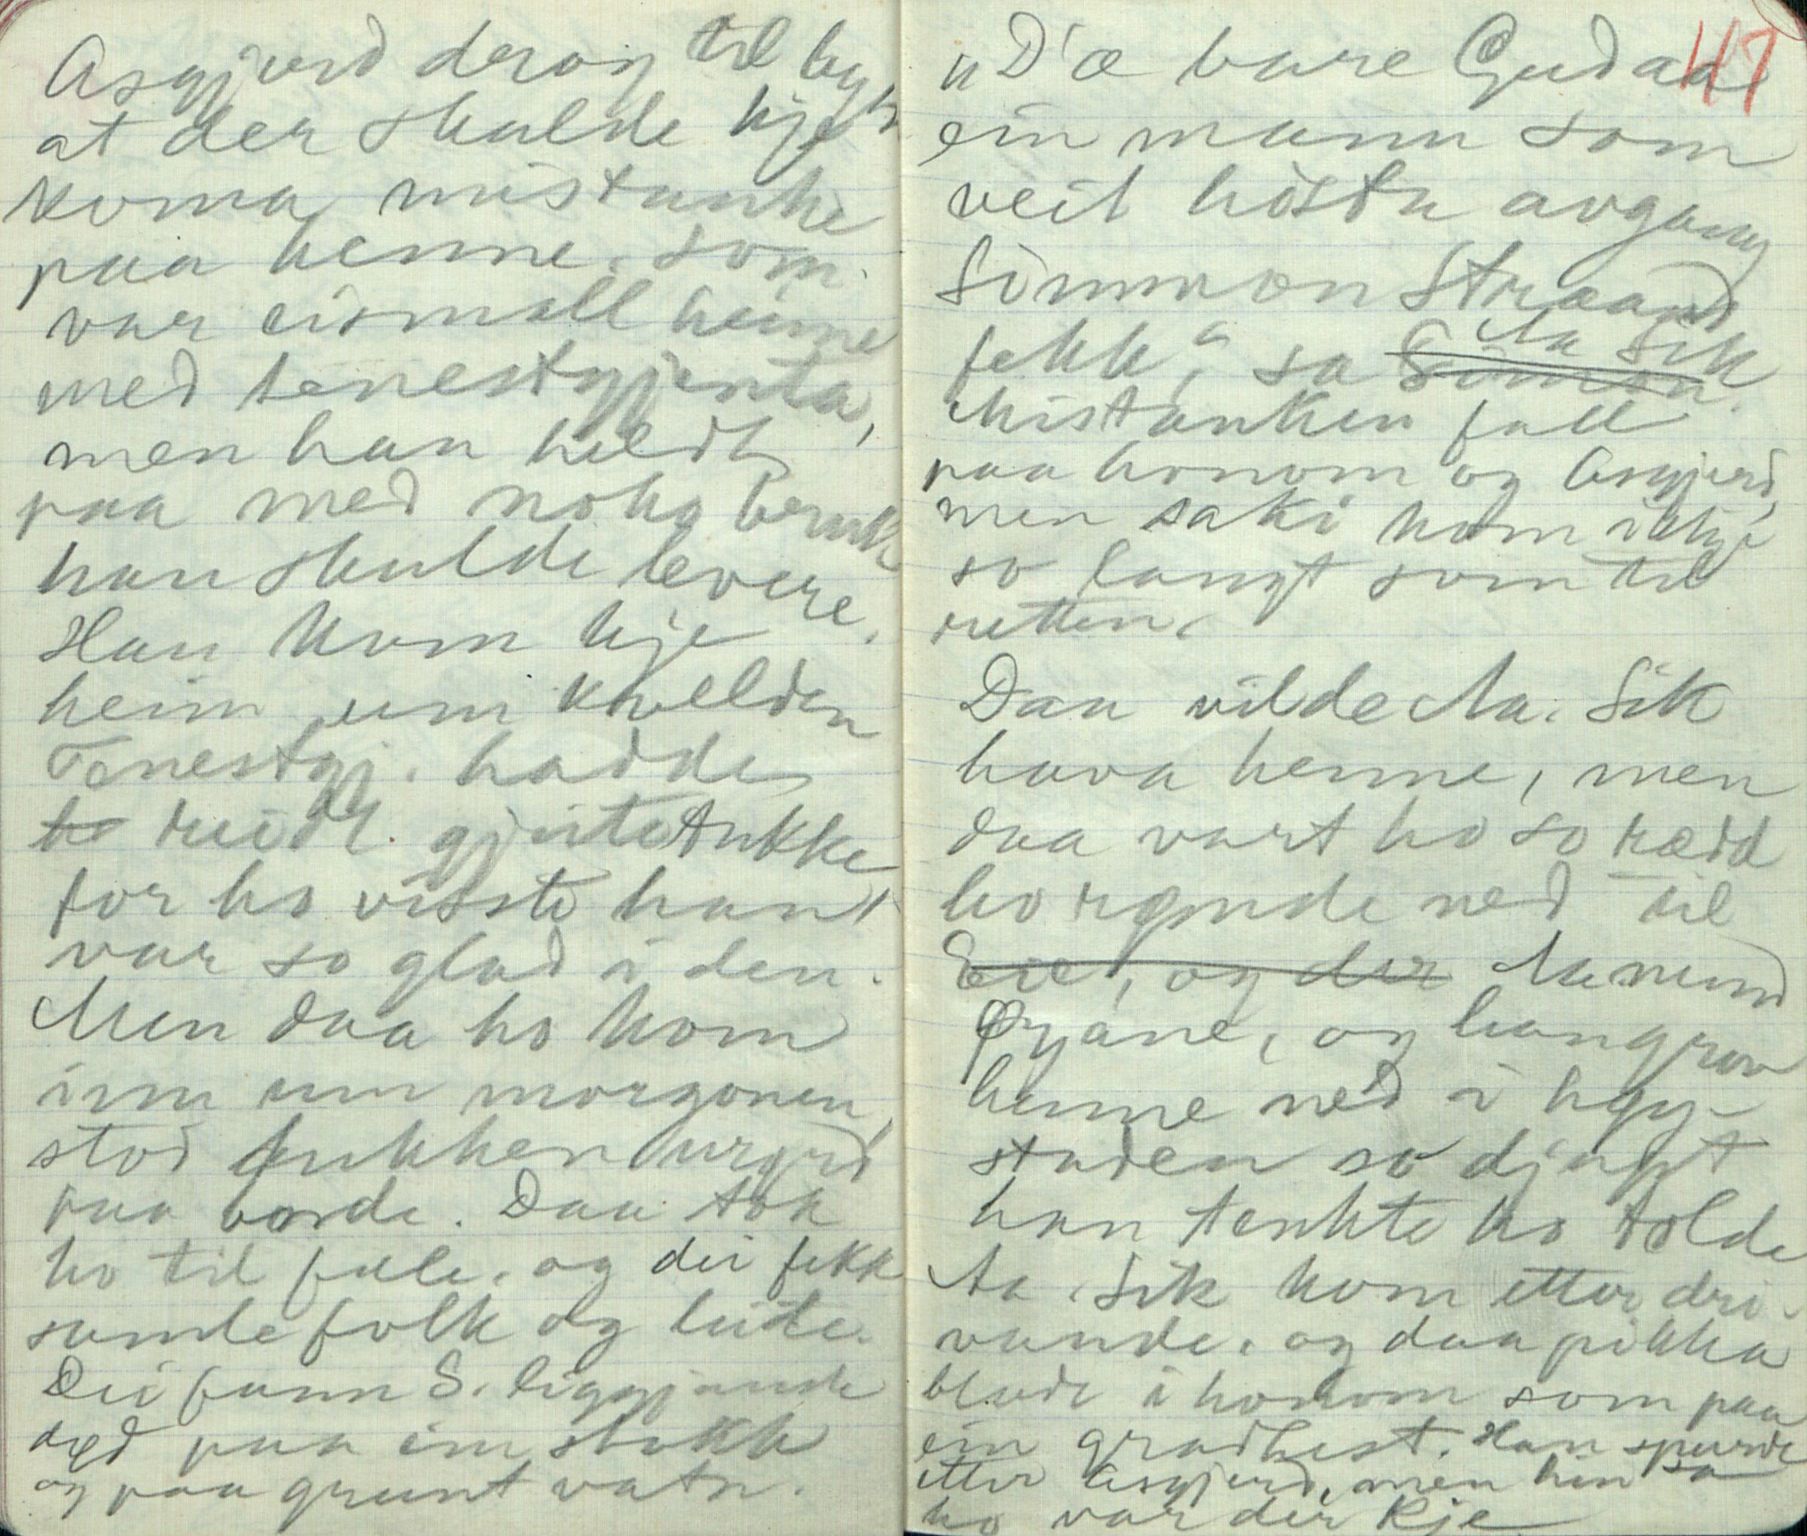 Asgjerd derog til bygds
at der skulde kje
koma mistanke
paa henne, som
var eismall heime
med tenestgjenta,
men han heldt
paa med noko bruk
han skulde levere.
Han kom kje
heim um kvelden
Tenestgj. hadde
ho reidt gjeitebukke
for ho visste han
var so glad i den.
Men daa ho kom
inn um morgonen
stod bukken urørd
paa borde. Daa tok
ho til fæle, og dei fekk
samle folk og leite.
Dei fann S. liggjande
død paa ein stokk
og paa grunt vatn.
47
"D'æ bare Gud aa
ein mann som
veit hosta avgang
Simmon Straand
fekk", sa Simon Aa Sik
Mistanken fall
paa honom og Asgjerd,
men saki kom ikkje
so langt som til
retten.
Daa vilde Aa. Sik
hava henne, men
daa vart ho so rædd
ho rømde ned til
Eie, og der Aamund
Øyane, og han grov
henne ned i høy-
staden so djupt
han tenkte ho tolde
Aa. Sik kom etter dri-
vande, og daa pikka
blode i honom som paa
ein gradhest. Han spurde
etter Asgjerd, men hin sa
ho var der kje